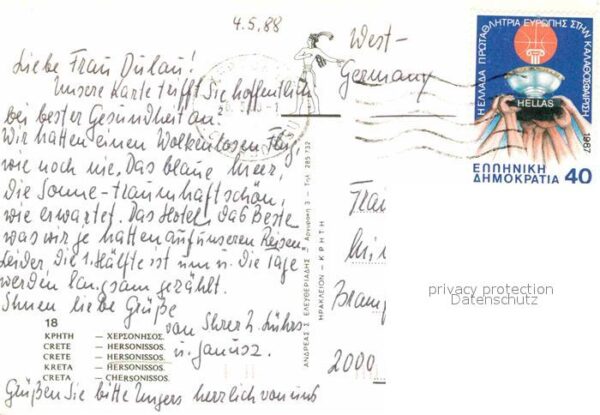 4.5.88
Liebe Frau Dulau!
Unsere Karte trifft Sie hoffentlich
bei bester Gesundheit an?
Wir hatten einen Wolkenlosen Flug,
wie noch nie. Das blaue Meer,
die Sonne - traumhaft schön,
wie erwartet. Das Hotel, das Beste
was wir je hatten auf unseren Reisen.
Leider die 1. Hälfte ist um u. die Tage
werden langsam gezählt.
Ihnen liebe Grüße
von Ihrer
u. Janusz.
Grüßen Sie bitte Ungers herzlich von uns
18
ΚΡΗΤΗ — ΧΕΡΣΟΝΗΣΟΣ.
CRETE — HERSONISSOS.
CRETE — HERSONISSOS.
KRETA — HERSONISSOS.
CRETA — CHERSONISSOS.
ΑΝΔΡΕΑΣ Σ. ΕΛΕΥΘΕΡΙΑΔΗΣ - Αργυράκη 3 - Τηλ. 285 732
ΗΡΑΚΛΕΙΟΝ - ΚΡΗΤΗ
West-
Germany
Frau
2000
ΗΕΛΛΑΔΑ ΠΡΩΤΑΘΛΗΤΡΙΑ ΕΥΡΩΠΗΣ ΣΤΗΝ ΚΑΛΑΘΟΣΦΑΙΡΙΣΗ
HELLAS
1987
ΕΛΛΗΝΙΚΗ
ΔΗΜΟΚΡΑΤΙΑ 40
privacy protection
Datenschutz